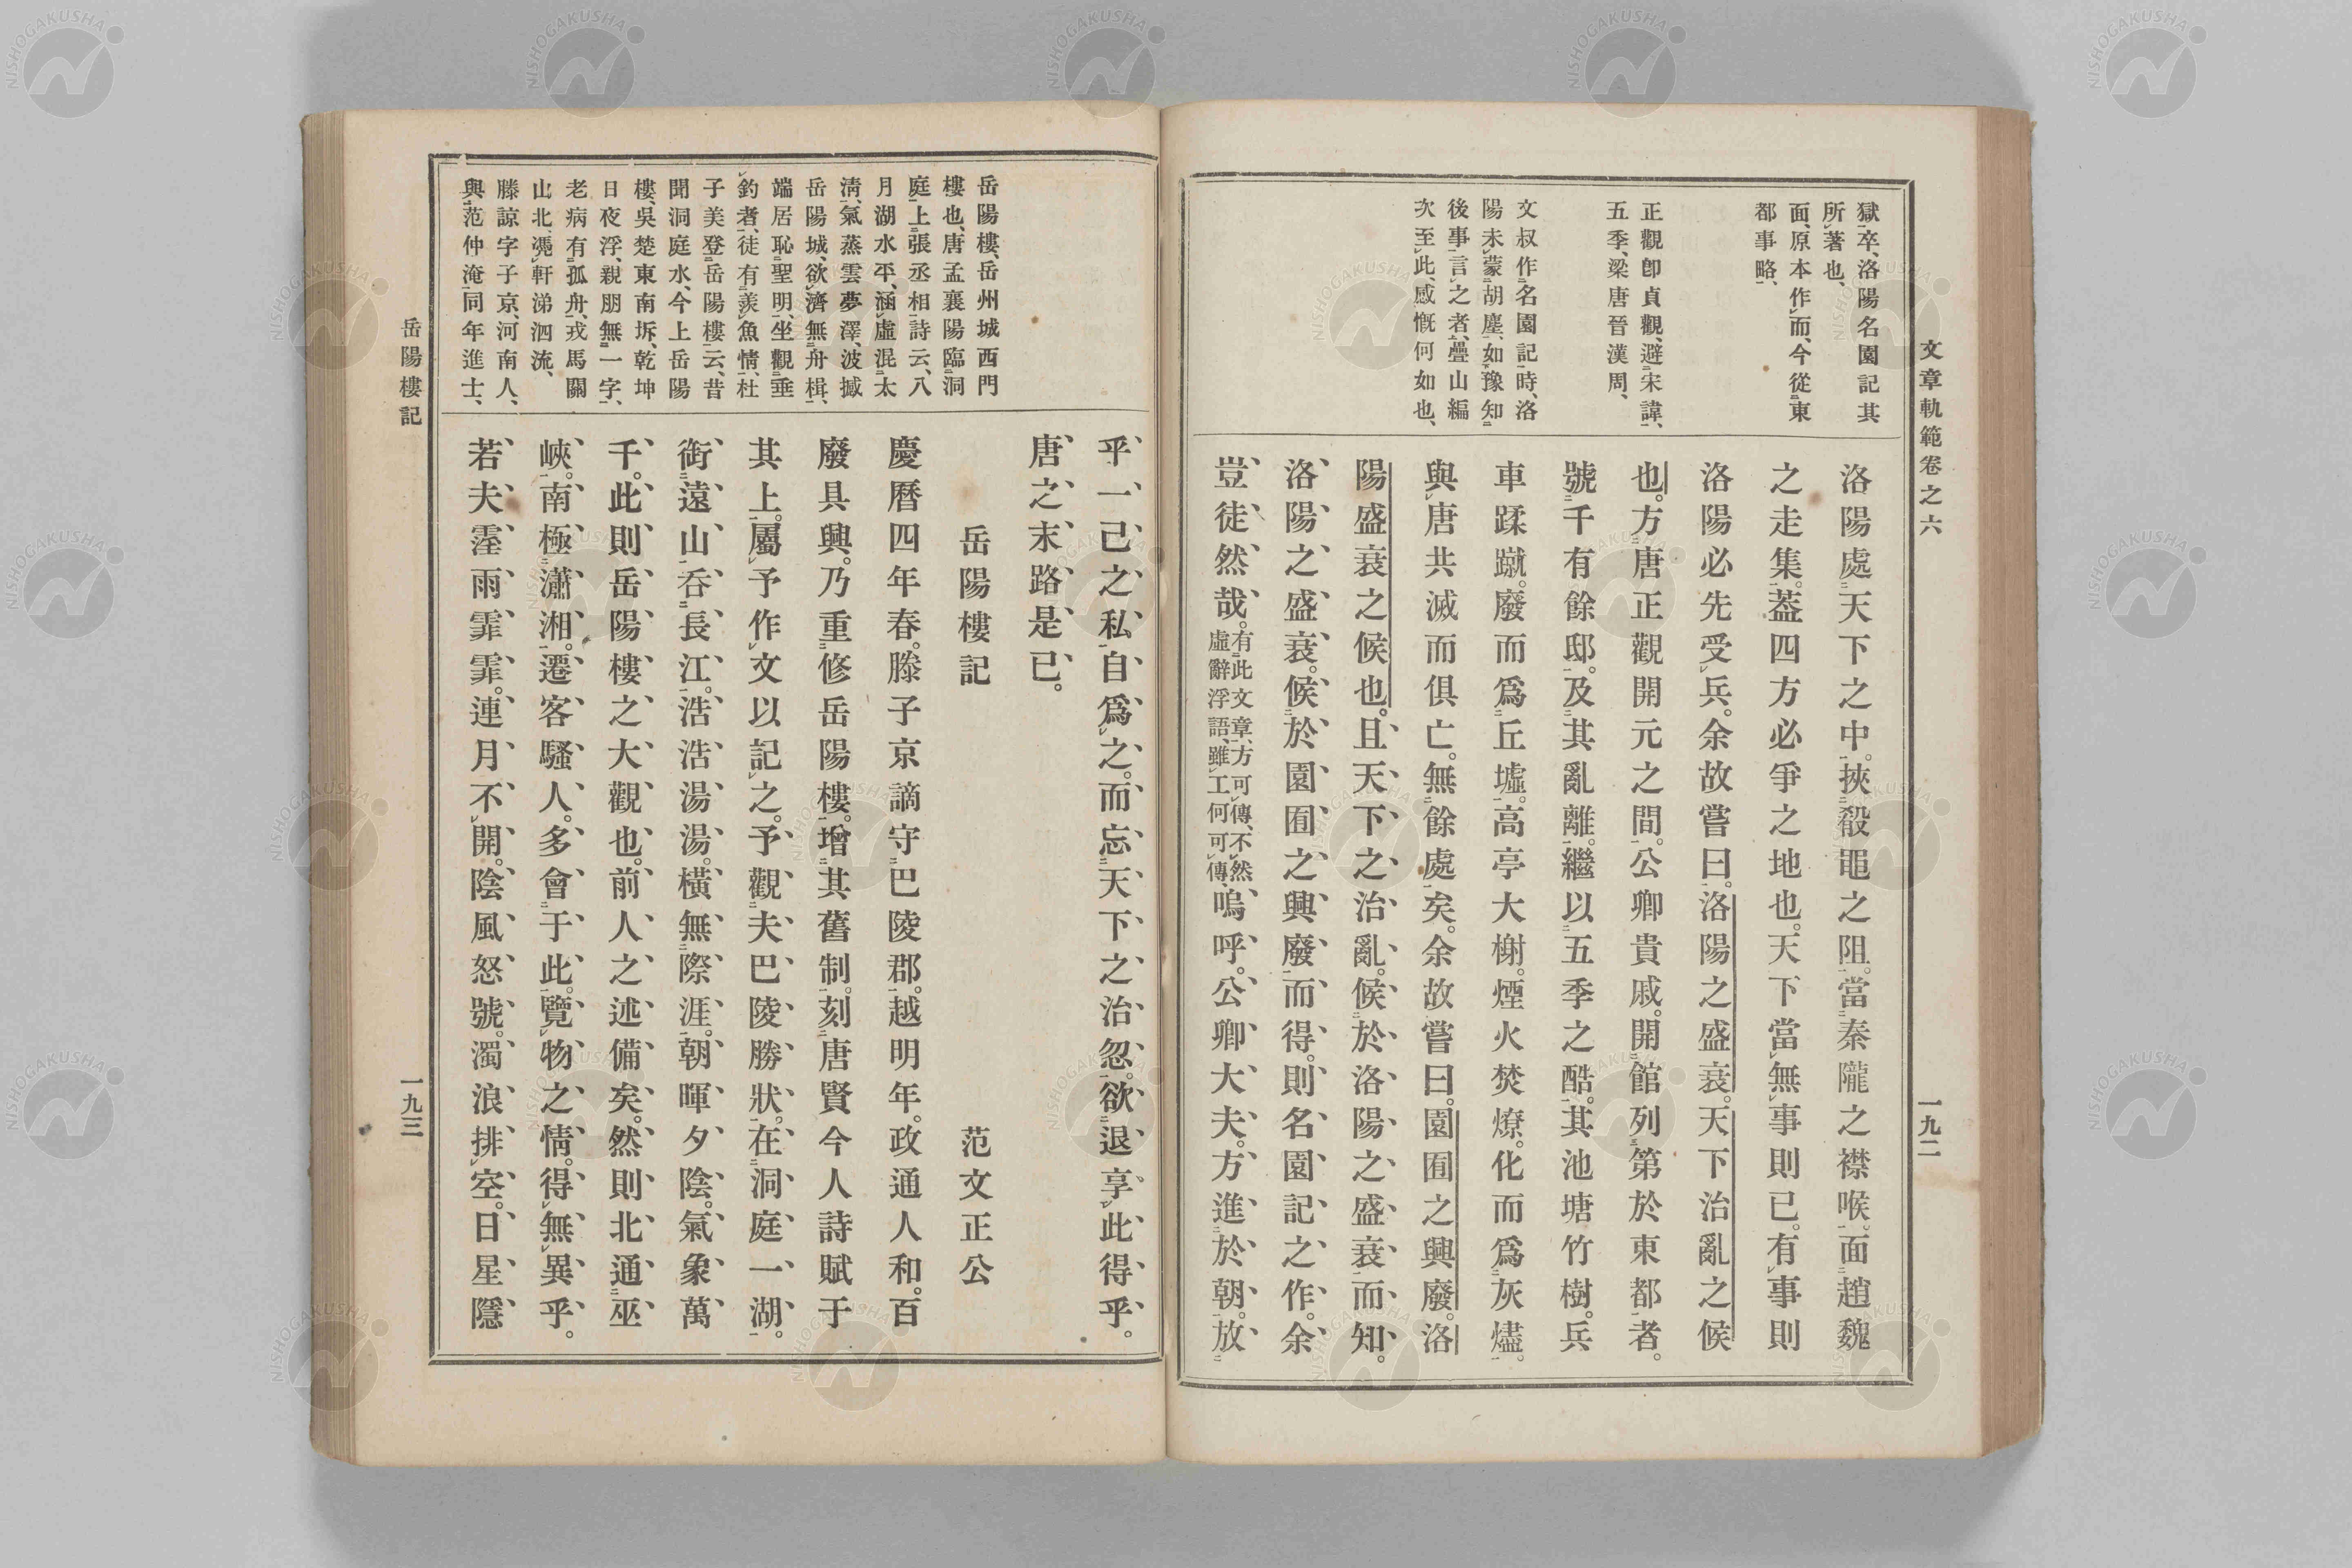 文章軌範卷之六
一九二
獄卒、洛陽名園記其
所著也、
面、原本作而、今從東
都事略、
正觀卽貞觀、避宋諱、
五季、梁唐晉漢周、
文叔作名園記時、洛
陽未蒙胡塵、如豫知
後事言之者、疊山編
次至此、感慨何如也、
洛陽處天下之中。挾殽黽之阻。當秦隴之襟喉。面趙魏
之走集。蓋四方必爭之地也。天下當無事則已。有事則
洛陽必先受兵。余故嘗曰。洛陽之盛衰。天下治亂之候
也。方唐正觀開元之間。公卿貴戚。開館列第於東都者。
號千有餘邸。及其亂離。繼以五季之酷。其池塘竹樹。兵
車蹂蹴。廢而爲丘墟。高亭大榭。煙火焚燎。化而爲灰燼。
與唐共滅而俱亡。無餘處矣。余故嘗曰。園囿之興廢。洛
陽盛衰之候也。且天下之治亂。候於洛陽之盛衰而知。
洛陽之盛衰。候於園囿之興廢而得。則名園記之作。余
豈徒然哉。有此文章、方可傳、不然
虛辭浮語、雖工何可傳、
嗚呼。公卿大夫。方進於朝。放
乎一己之私。自爲之。而忘天下之治忽。欲退享此得乎。
唐之末路是已。
岳陽樓記　范文正公
慶曆四年春。滕子京謫守巴陵郡。越明年。政通人和。百
廢具興。乃重修岳陽樓。增其舊制。刻唐賢今人詩賦于
其上。屬予作文以記之。予觀夫巴陵勝狀。在洞庭一湖。
銜遠山。吞長江。浩浩湯湯。橫無際涯。朝暉夕陰。氣象萬
千。此則岳陽樓之大觀也。前人之述備矣。然則北通巫
峽。南極瀟湘。遷客騷人。多會于此。覽物之情。得無異乎。
若夫霪雨霏霏。連月不開。陰風怒號。濁浪排空。日星隱
岳陽樓、岳州城西門
樓也、唐孟襄陽臨洞
庭上張丞相詩云、八
月湖水平、涵虛混太
淸、氣蒸雲夢澤、波撼
岳陽城、欲濟無舟楫、
端居恥聖明、坐觀垂
釣者、徒有羨魚情、杜
子美登岳陽樓云、昔
聞洞庭水、今上岳陽
樓、吳楚東南坼、乾坤
日夜浮、親朋無一字、
老病有孤舟、戎馬關
山北、凴軒涕泗流、
滕諒字子京、河南人、
與范仲淹同年進士、
岳陽樓記
一九三